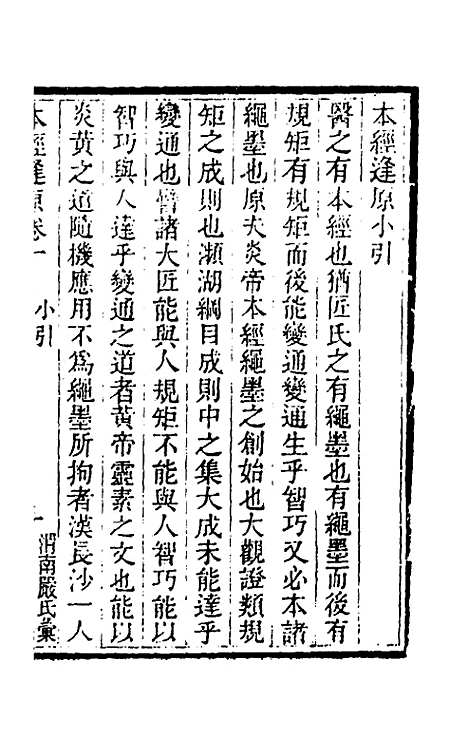 本經逢原小引
醫之有本經也猶匠氏之有繩墨也有繩墨而後有
規矩有規矩而後能變通變通生乎智巧又必本諸
繩墨也原夫炎帝本經繩墨之創始也大觀證類規
矩之成則也瀕湖綱目成則中之集大成未能達乎
變通也譬諸大匠能與人規矩不能與人智巧能以
智巧與人達乎變通之道者黃帝靈素之文也能以
炎黃之道隨機應用不爲繩墨所拘者漢長沙一人
本經逢原卷一 小引 一 渭南嚴氏彙